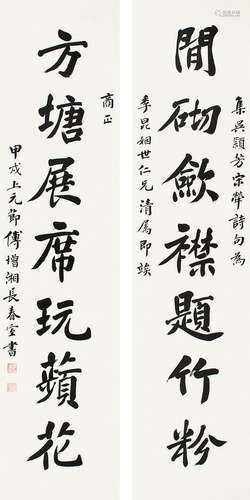 集吳穎芳宗彝詩句為
閒砌斂襟題竹粉
季昆姻世仁兄清屬即竢
商正
方塘展席玩蘋花
甲戌上元節傅增湘長春室書